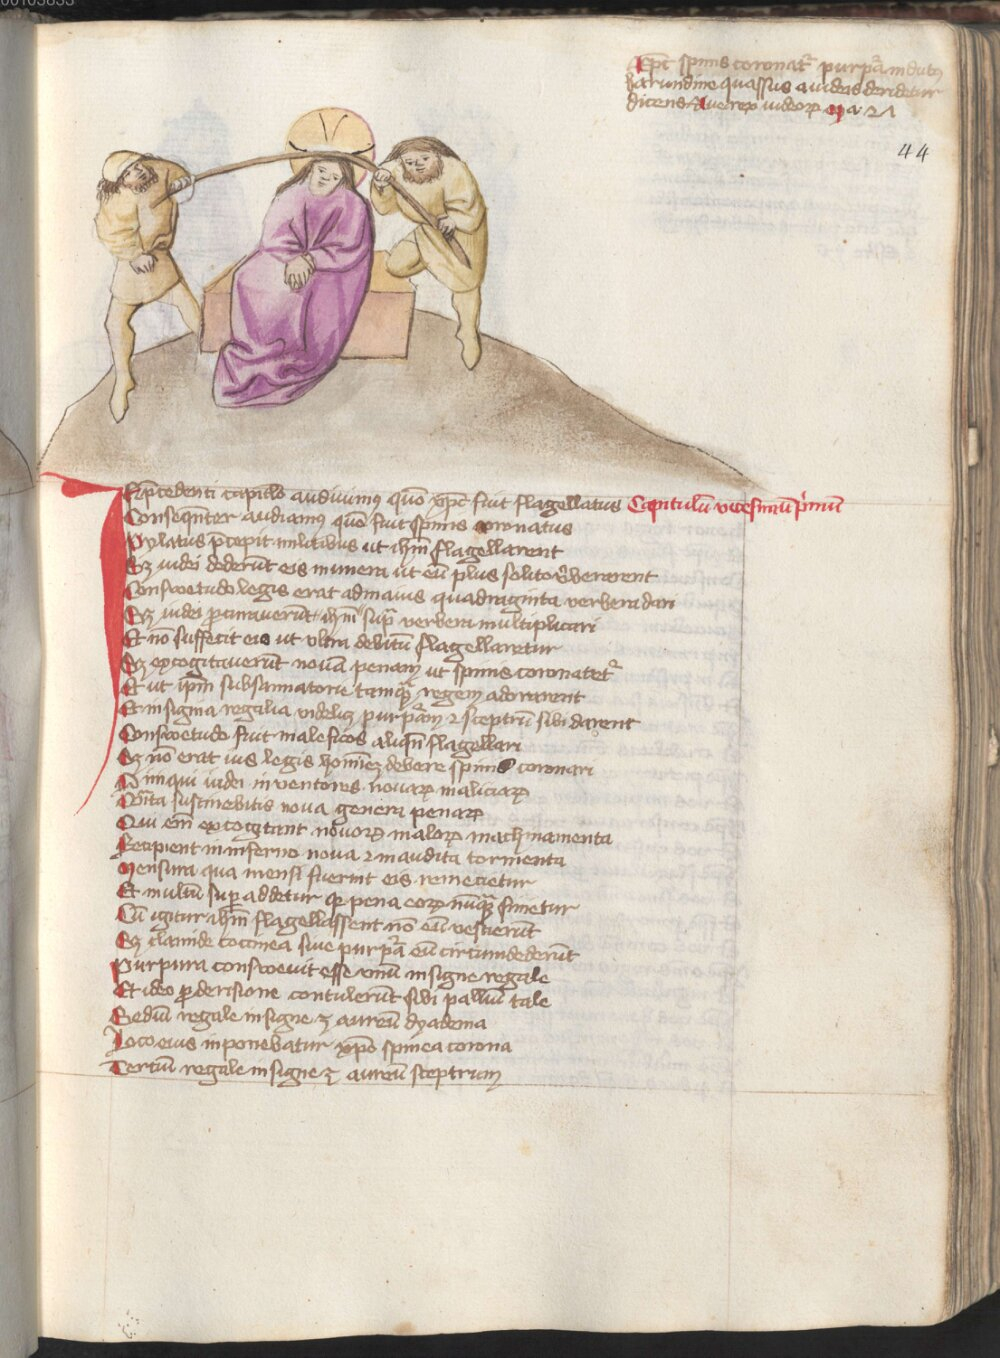 Xpc spinis coronat᷑ purpᷓa indutus
harundine quassus a iudeis deridetur
dicens Ave rex iudeoꝝ Mᷓ 27
44
In p̄cedenti capitl̓o audiuimꝰ quō xp̄c fuit flagellatus Capitulū vicesimū p̓mū
Conseqn̄ter audiamꝰ quō fuit spinis coronatus
Pylatus p̄cepit militibus ut ihm̄ flagellarent
Sꝫ iudei dederūt eis munera ut eū plus solito v̓berarent
Conswetudo legis erat ad maius quadraginta verbera dari
Sꝫ iudei ꝓcuraverūt ihm̄ suꝑ verbera multiplicari
Et nō suffecit eis ut ultra debitū flagellaretur
Sꝫ excogitaverūt novā penam ut spinis coronaret᷑
Et ut ip̄m subsannatorie tamqᷓ regem adorarent
Et insignia regalia videlicꝫ purpᷓam ⁊ sceptrū sibi darent
Conswetudo fuit maleficos aliqn̄ flagellari
Sꝫ nō erat ius legis hominē debere spinis coronari
O iniqui iudei inventores novaꝝ maliciaꝝ
Qᷓnta sustinebitis nova genera penaꝝ
Qui em̄ excogitant novoꝝ maloꝝ machinamenta
Recipient in inferno nova ⁊ inaudita tormenta
Mensura qua mensi fuerint eis remecietur
Et multū suꝑaddetur qꝛ pena eoꝝ nūqᷓ finietur
Cū igitur ihm̄ flagellassent nō eū vestierūt
Sꝫ clamide coccinea sive purpᷓa eū circumdederūt
Purpura conswevit esse unū insigne regale
Et ideo ꝓ derisione contulerūt sibi palliū tale
Secdū regale insigne ē aureū dyadema
Loco eius imponebatur xp̄o spinea corona
Tertiū regale insigne ē aureū sceptrum